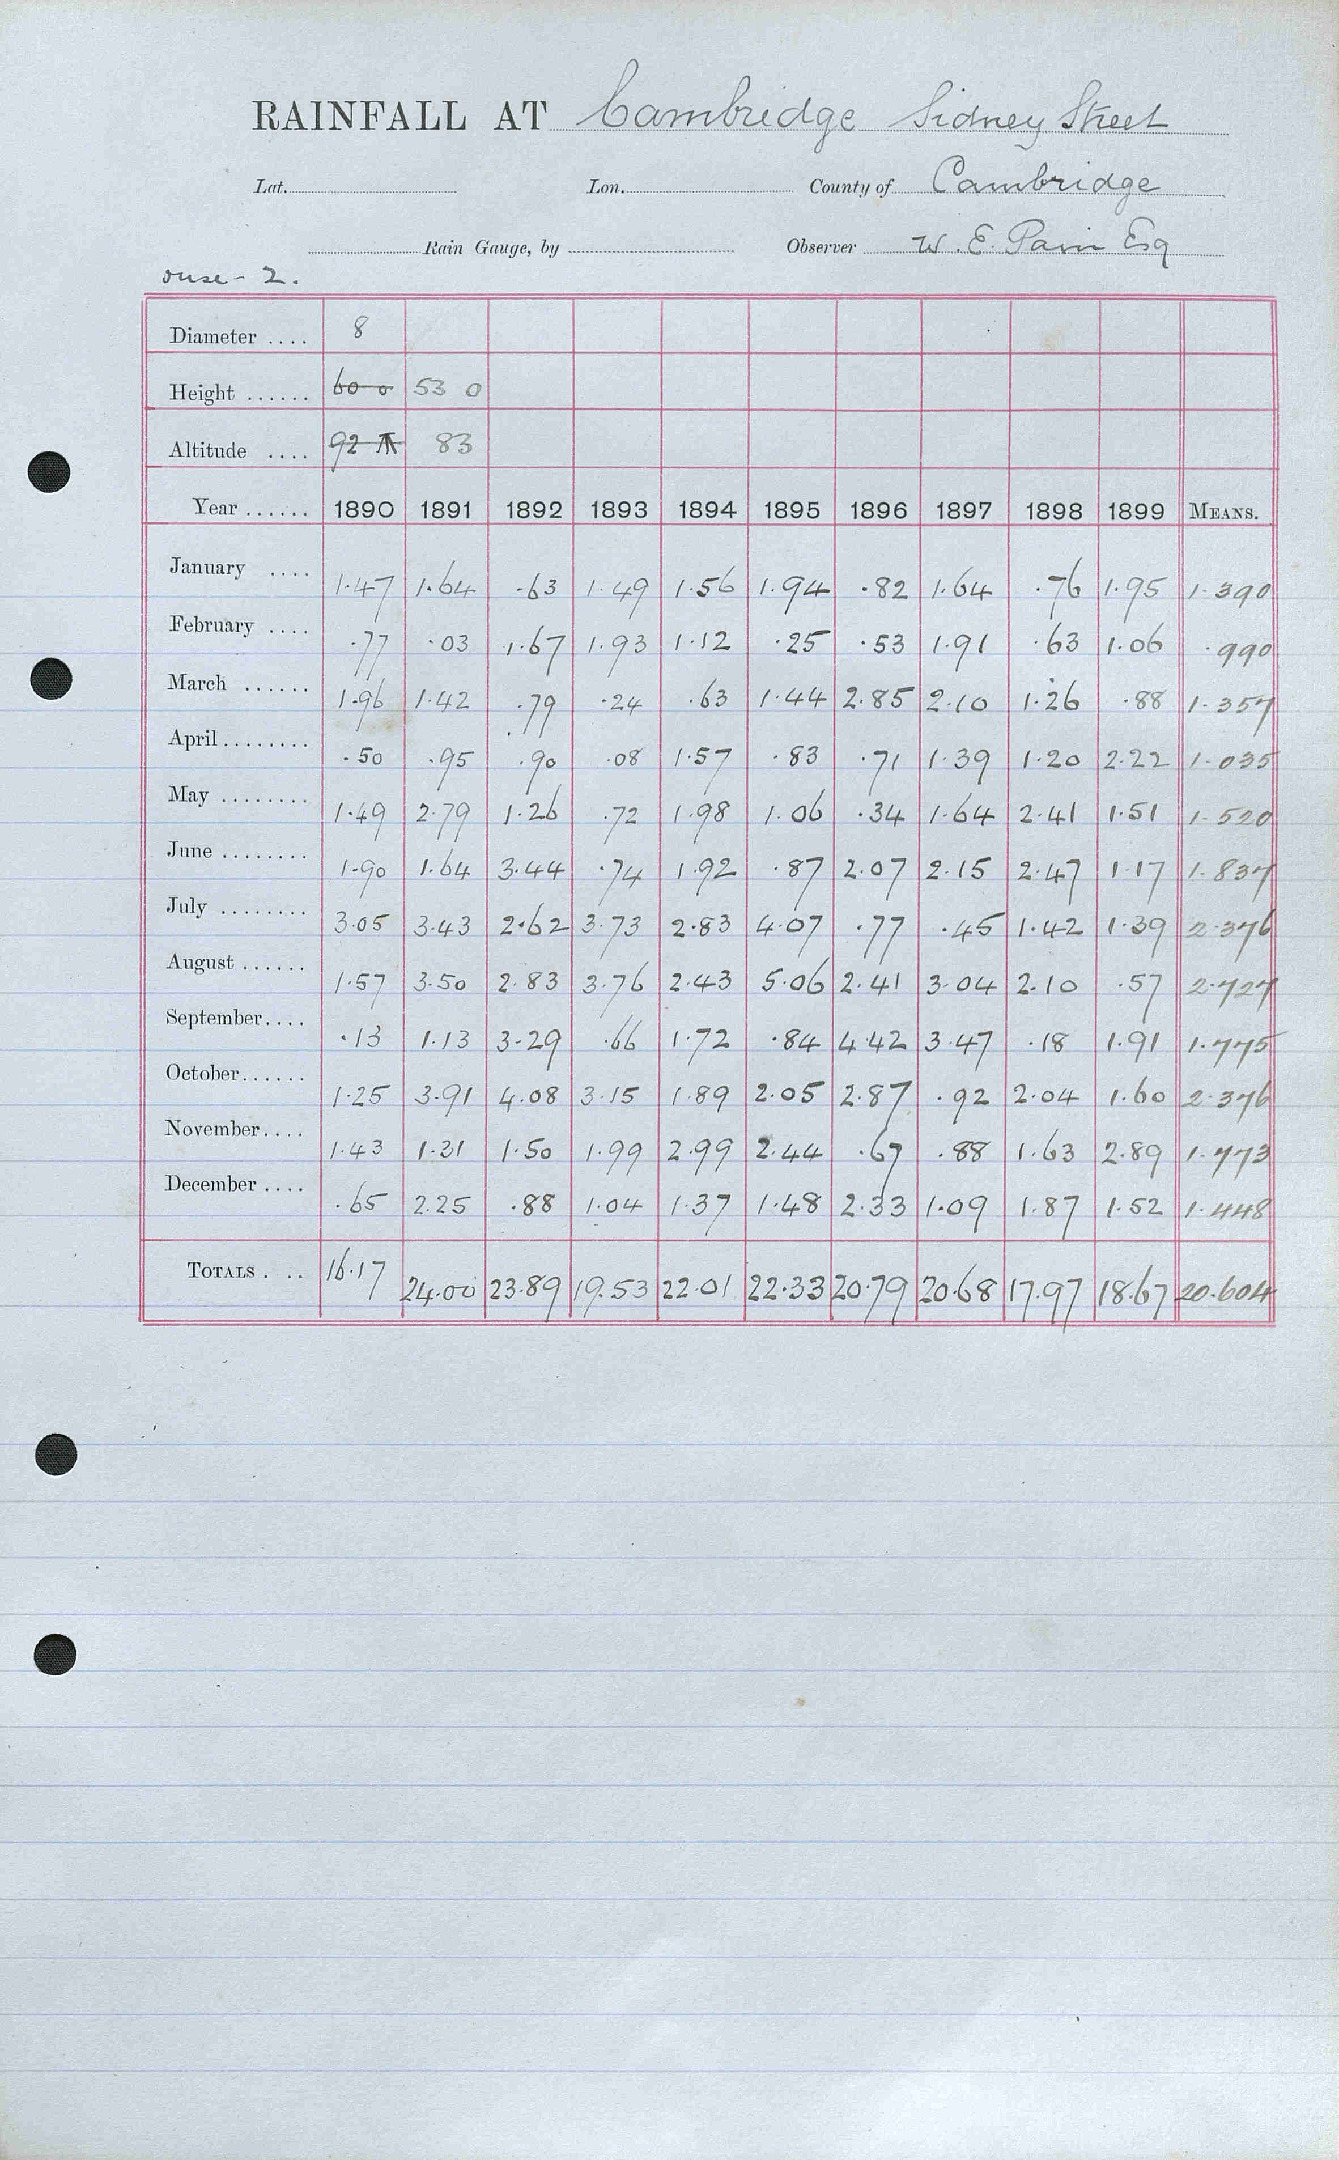 RAINFALL AT Cambridge Sidney Street
Lat. Lon. County of Cambridge
Rain Gauge, by Observer W. E. Pain Esq
ouse - 2.
Diameter .... 8
Height ...... 60 0 53 0
Altitude .... 92 83
Year ...... 1890 1891 1892 1893 1894 1895 1896 1897 1898 1899 MEANS.
January .... 1.47 1.64 .63 1.49 1.56 1.94 .82 1.64 .76 1.95 1.390
February .... .77 .03 1.67 1.93 1.12 .25 .53 1.91 .63 1.06 .990
March ...... 1.96 1.42 .79 .24 .63 1.44 2.85 2.10 1.26 .88 1.357
April ........ .50 .95 .90 .08 1.57 .83 .71 1.39 1.20 2.22 1.035
May ........ 1.49 2.79 1.26 .72 1.98 1.06 .34 1.64 2.41 1.51 1.520
June ........ 1.90 1.64 3.44 .74 1.92 .87 2.07 2.15 2.47 1.17 1.837
July ........ 3.05 3.43 2.62 3.73 2.83 4.07 .77 .45 1.42 1.39 2.376
August ...... 1.57 3.50 2.83 3.76 2.43 5.06 2.41 3.04 2.10 .57 2.727
September .... .13 1.13 3.29 .66 1.72 .84 4.42 3.47 .18 1.91 1.775
October ...... 1.25 3.91 4.08 3.15 1.89 2.05 2.87 .92 2.04 1.60 2.376
November .... 1.43 1.31 1.50 1.99 2.99 2.44 .67 .88 1.63 2.89 1.773
December .... .65 2.25 .88 1.04 1.37 1.48 2.33 1.09 1.87 1.52 1.448
TOTALS . .. 16.17 24.00 23.89 19.53 22.01 22.33 20.79 20.68 17.97 18.67 20.604